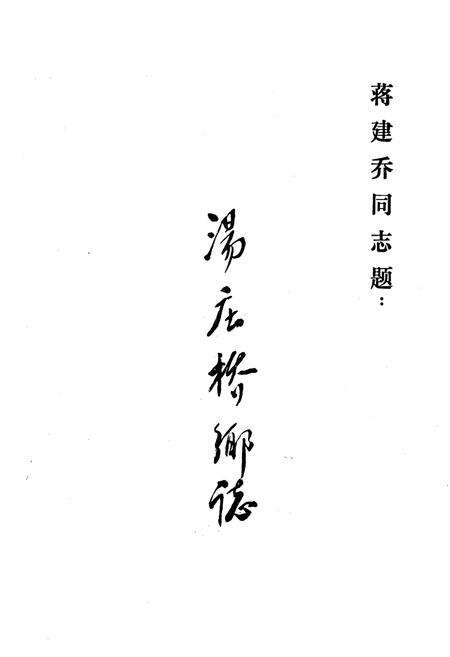 蒋建乔同志题：
湯庄桥鄉誌